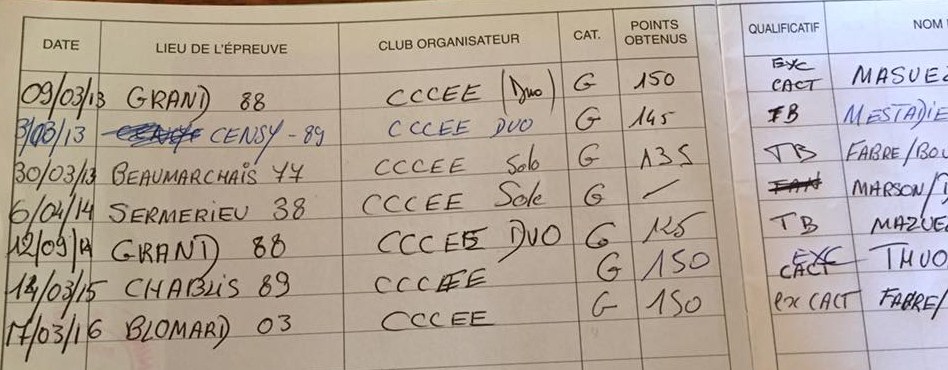 DATE LIEU DE L'ÉPREUVE CLUB ORGANISATEUR CAT. POINTS OBTENUS QUALIFICATIF NOM
09/03/13 GRAND 88 CCCEE (Duo) G 150 EXC CACT MASUEZ
3/03/13 CENSY - 89 CCCEE DUO G 145 TB MESTADIE
30/03/13 BEAUMARCHAIS 77 CCCEE Solo G 135 TB FABRE/BOU
6/04/14 SERMERIEU 38 CCCEE Solo G — MARSON/
12/09/14 GRAND 88 CCCEE DUO G 125 TB MAZUE
14/03/15 CHABLIS 89 CCCEE G 150 EXC CACT THUO
17/03/16 BLOMARD 03 CCCEE G 150 exc CACT FABRE/